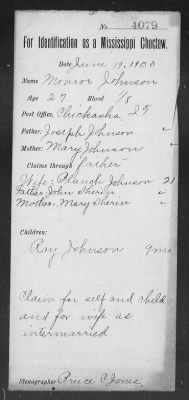 No 4079
For Identification as a Mississippi Choctaw.
Date June 19, 1900
Name Monroe Johnson
Age 27 Blood 1/8
Post Office, Chickasha I.T.
Father: Joseph Johnson "
Mother: Mary Johnson "
Claims through father
Wife: Blanch Johnson 21
Father John Sherin "
Mother: Mary Sherin "
Children:
Ray Johnson 9 mo
Claim for self and child
and for wife as
intermarried
Stenographer Bruce C. Jones